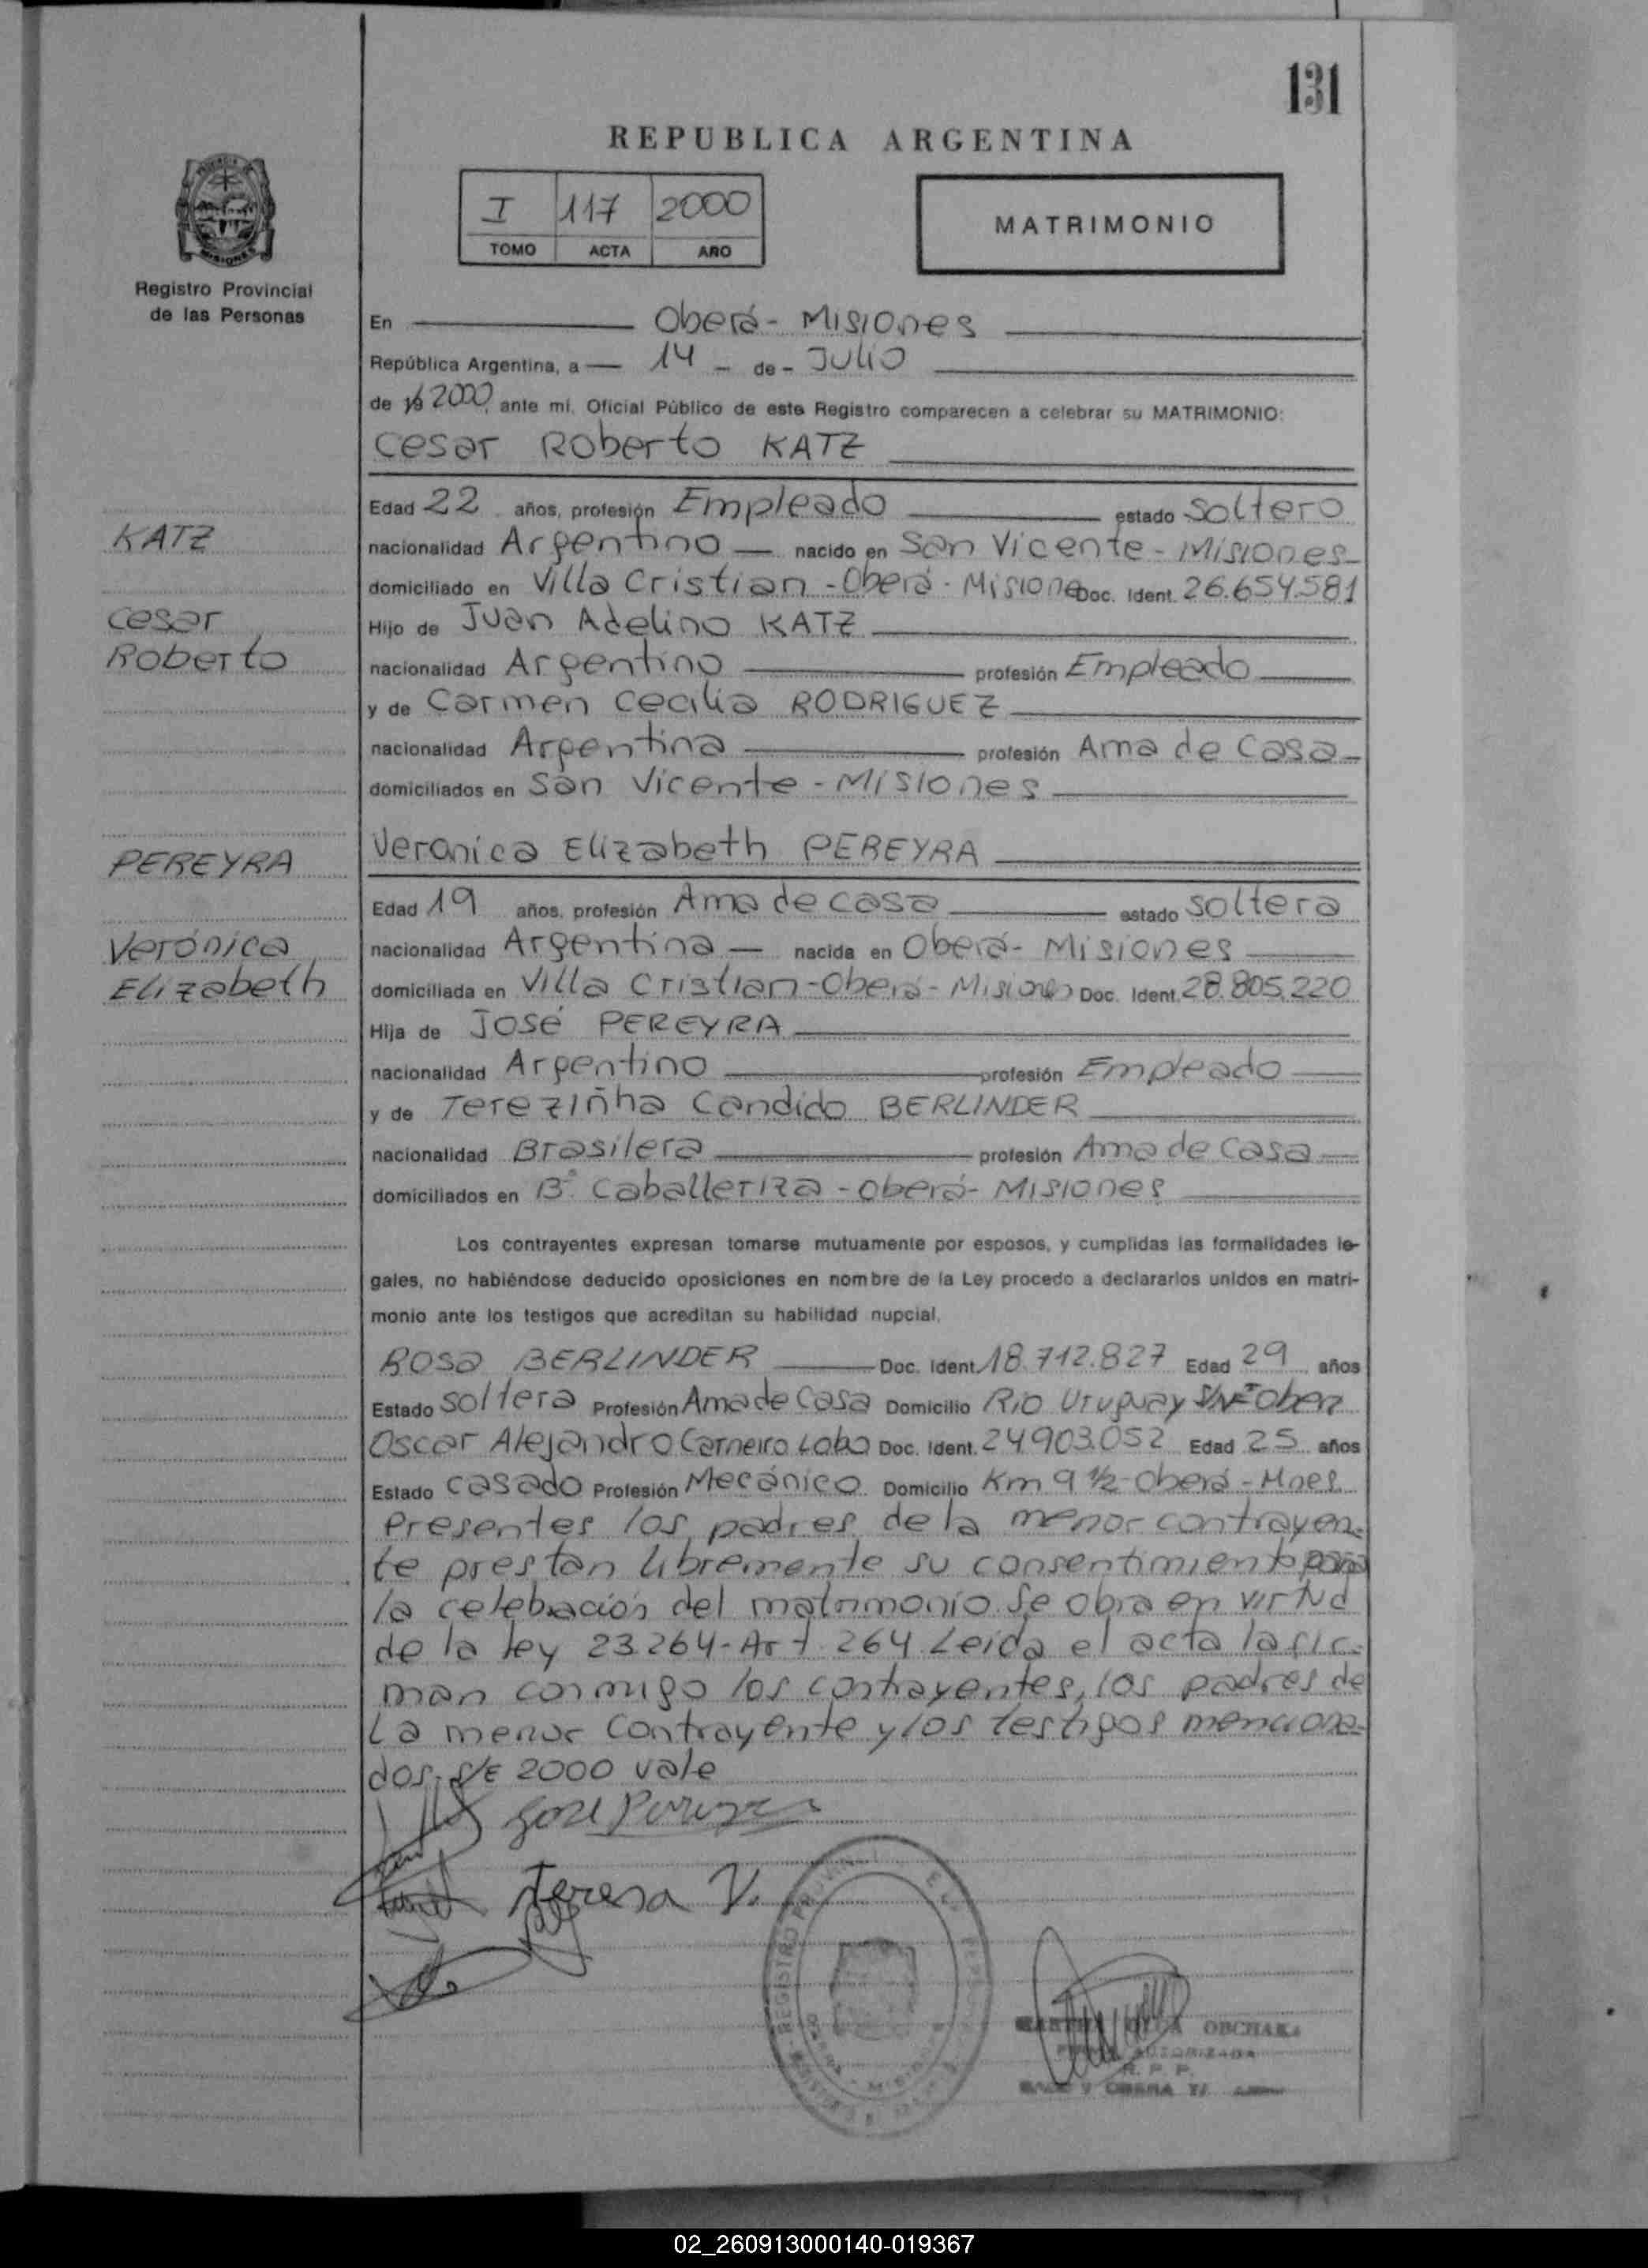 131
REPUBLICA ARGENTINA
I 117 2000
TOMO ACTA AÑO
MATRIMONIO
Registro Provincial
de las Personas
En Oberá - Misiones
República Argentina, a 14 - de - Julio
de 19 2000, ante mi, Oficial Público de este Registro comparecen a celebrar su MATRIMONIO:
Cesar Roberto KATZ
Edad 22 años, profesión Empleado estado Soltero
KATZ
nacionalidad Argentino nacido en San Vicente - Misiones
domiciliado en Villa Cristian - Oberá - Misiones Doc. Ident. 26.654.581
Cesar
Hijo de Juan Adelino KATZ
Roberto
nacionalidad Argentino profesión Empleado
y de Carmen Cecilia RODRIGUEZ
nacionalidad Argentina profesión Ama de Casa
domiciliados en San Vicente - Misiones
Veronica Elizabeth PEREYRA
PEREYRA
Edad 19 años, profesión Ama de casa estado Soltera
Verónica
nacionalidad Argentina nacida en Oberá - Misiones
Elizabeth
domiciliada en Villa Cristian - Oberá - Misiones Doc. Ident. 28.805.220
Hija de José PEREYRA
nacionalidad Argentino profesión Empleado
y de Tereziñha Candido BERLINDER
nacionalidad Brasilera profesión Ama de Casa
domiciliados en B° Caballeriza - Oberá - Misiones
Los contrayentes expresan tomarse mutuamente por esposos, y cumplidas las formalidades le-
gales, no habiéndose deducido oposiciones en nombre de la Ley procedo a declararlos unidos en matri-
monio ante los testigos que acreditan su habilidad nupcial.
Rosa BERLINDER Doc. Ident. 18.712.827 Edad 29 años
Estado Soltera Profesión Ama de Casa Domicilio Rio Uruguay S/N°
Oscar Alejandro Carneiro Lobo Doc. Ident. 24903.052 Edad 25 años
Estado Casado Profesión Mecánico Domicilio Km 9 ½ - Oberá - Mnes
Presentes los padres de la menor contrayen-
te prestan libremente su consentimiento para
la celebración del matrimonio. Se obra en virtud
de la ley 23.264 - Art. 264. Leida el acta la fir-
man conmigo los contrayentes, los padres de
la menor contrayente y los testigos menciona-
dos. S/E 2000 vale
Jose Pereyra
Teresa V.
REGISTRO
OBCHAK
AUTORIZADA
R. P. P.
02_260913000140-019367